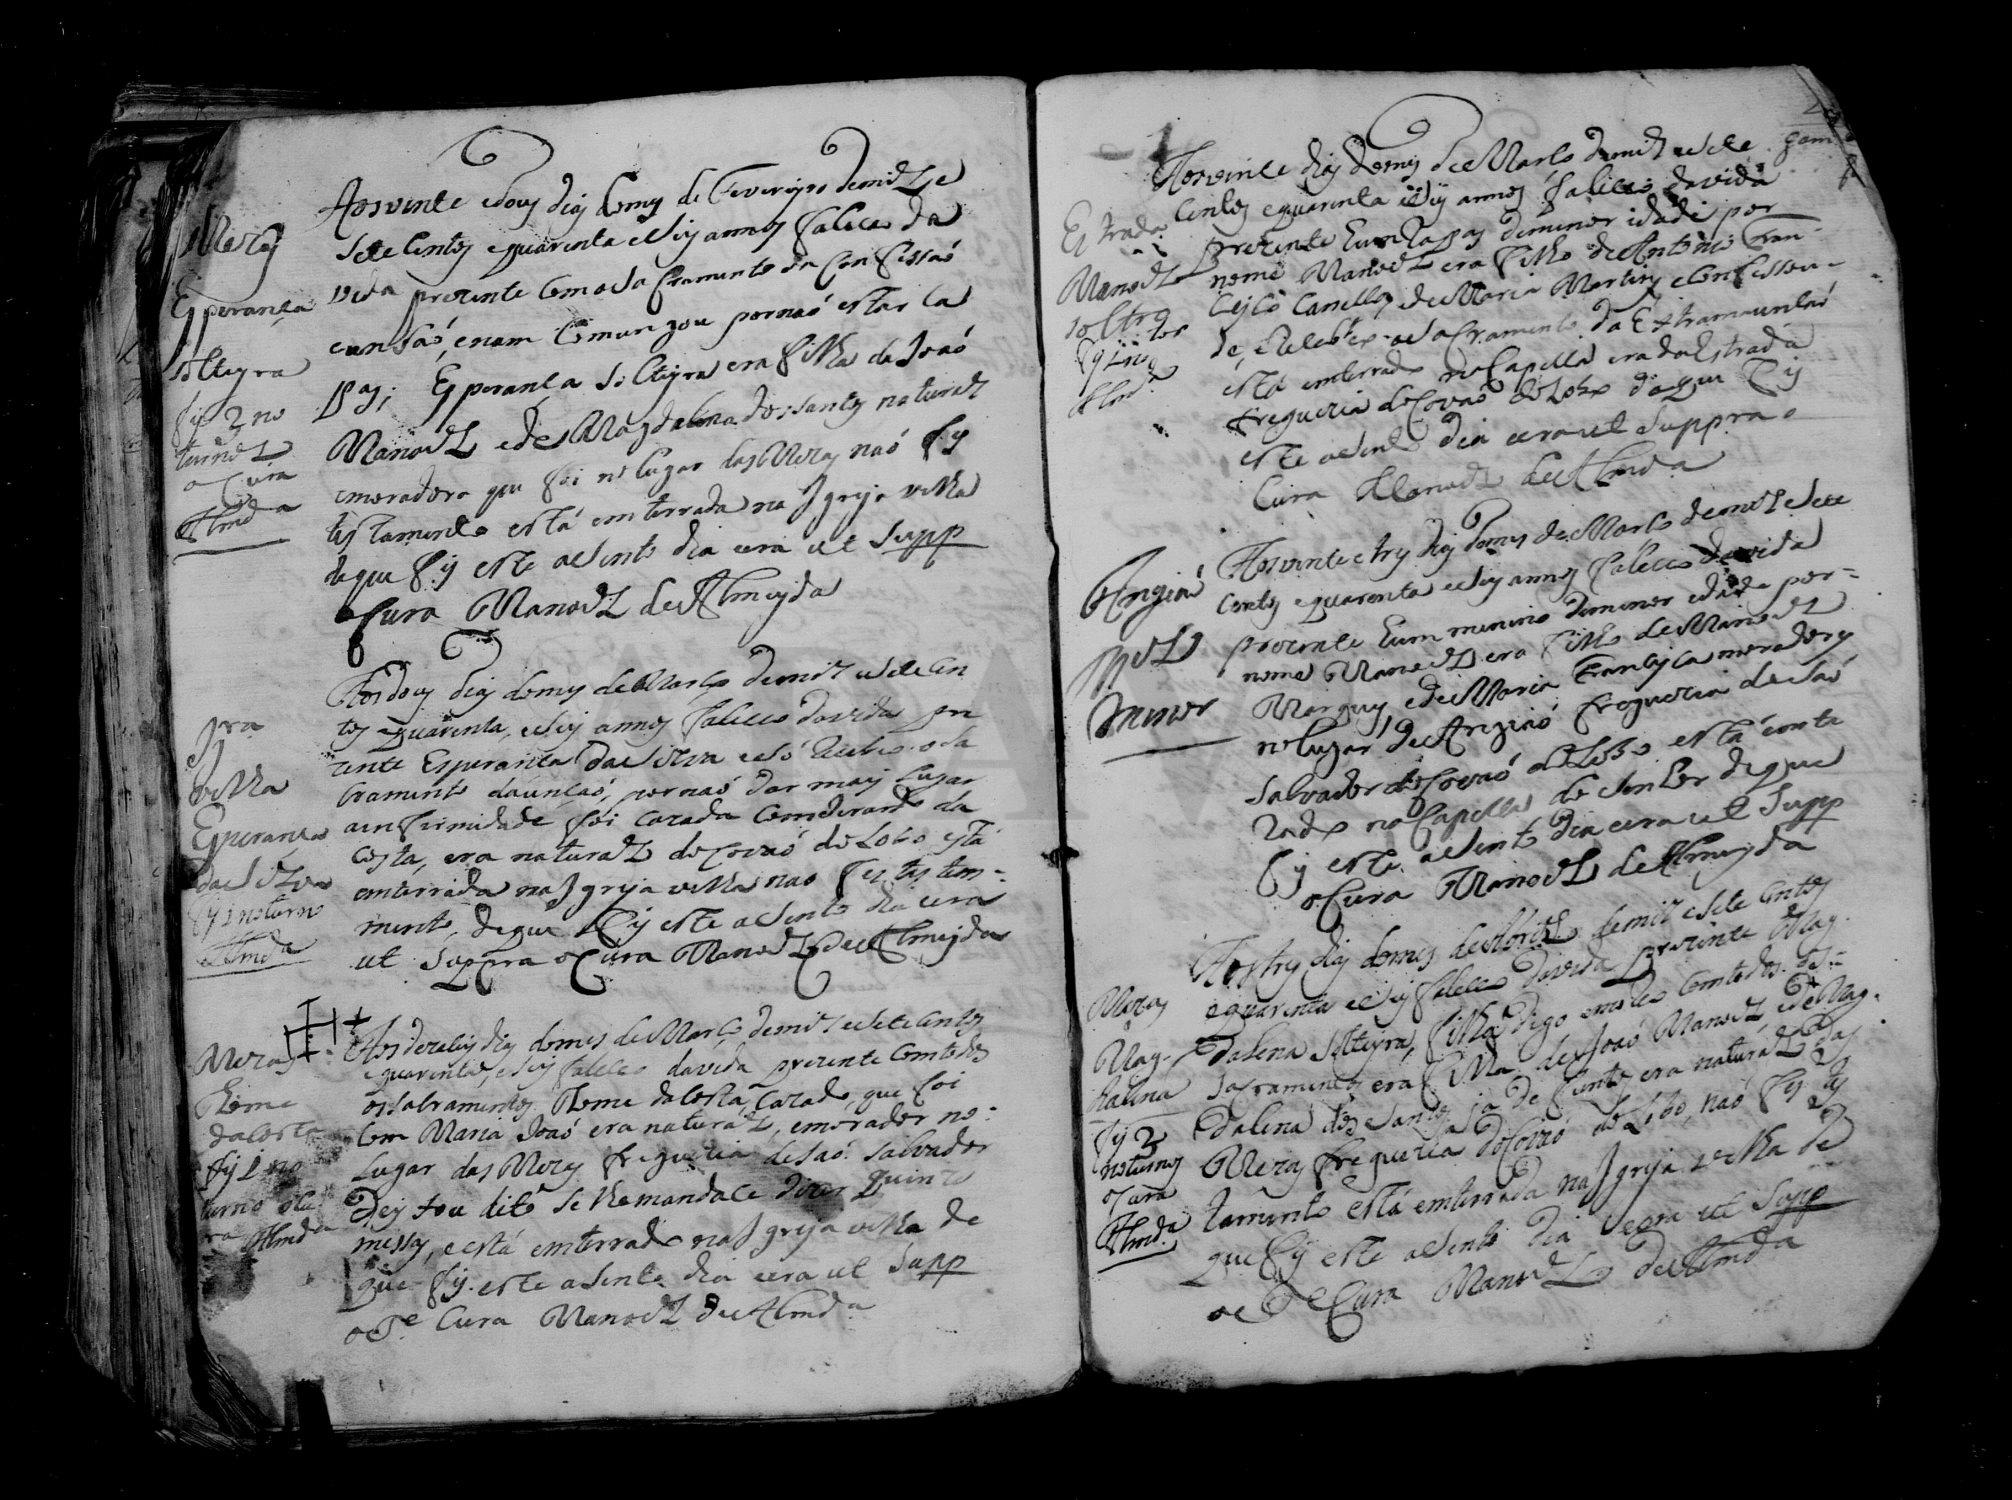 Mezas
Esperança
solteyra
fis 2 no
turnos
o Cura
Almda
Aos vinte e dous dias do mes de Fevereyro de mil e
sete centos e quarenta e seis annos faleceo da
vida prezente com o sacramento da confissaó
e unsaó, e nam comungou por naó estar ca
pas; Esperança solteyra era filha de Joaó
Manoel e de Magdalena dos santos natural
e moradora que foi no lugar das Mezas naó fes
testamento está enterrada na Igreja velha
de que fis este asento dia e era ut supp
o Cura Manoel de Almeyda
Igra
velha
Esperança
da Silva
fis 1 noturno
Almda
Aos dous dias do mes de Março de mil e sete cen
tos e quarenta, e seis annos faleceo da vida pre
zente Esperança da Silva e só recebeo o sa
cramento da unsaó, por naó dar mais lugar
a infirmidade foi cazada com
Costa, era natural do Covaó do Lobo está
enterrada na Igreja velha nao fes testem-
mento, de que fis este asento dia e era
ut suppra o Cura Manoel de Almeyda
Mezas
Thome
da Costa
fis 1 no
turno o Cu
ra Almda
Aos dezaseis dias do mes de Março de mil e sete centos
e quarenta, e seis faleceo da vida prezente com todos
os sacramentos Thome da Costa, cazado, que foi
com Maria Joaó era natural, e morador no-
Lugar das Mezas freguezia de Saó Salvador
Deixou dito se lhe mandace dizer quinze
missas, e está enterrado na Igreja velha de
que fis este asento dia e era ut supp
o Pe Cura Manoel de Almda
Estrada
Manoel
solteyro
fis
Almda
Aos vinte dias do mes de Março de mil e sete
centos e quarenta e seis annos faleceo da vida
prezente hum rapas de menor idade por
nome Manoel era filho de Antonio Fran-
cisco Canellas e de Maria Martins e confessou-
se, e recebeo o sacramento da Extramaunsaó
está enterrado na Capella era da Estrada
freguezia do Covaó do Lobo de que fis
este asento dia e era ut suppra o
Cura Manoel de Almda
Angiaó
Mel
menor
Aos vinte e tres dias do mes de Março de mil e sete
centos e quarenta e seis annos faleceo da vida
prezente hum menino de menor idade por-
nome Manoel era filho de Manoel
Marques e de Maria Francisca moradores
no lugar de Angiaó freguezia de Saó
Salvador do Covaó do Lobo está enter
rado na Capella do Senhor de que
fis este asento dia e era ut supp
o Cura Manoel de Almeyda
Mezas
Mag-
dalena
fis 2
noturnos
o Cura
Almda
Aos tres dias do mes de Abril de mil e sete centos
e quarenta e seis faleceo da vida prezente Mag-
dalena solteyra, filha digo em com todos os-
sacramentos era filha de Joaó Manoel e de Mag-
dalena dos Santos ja defuntos era natural das
Mezas freguezia do Covaó do Lobo, naó fes tes
tamento está enterrada na Igreja velha de
que fis este asento dia e era ut supp
o Pe Cura Manoel de Almda